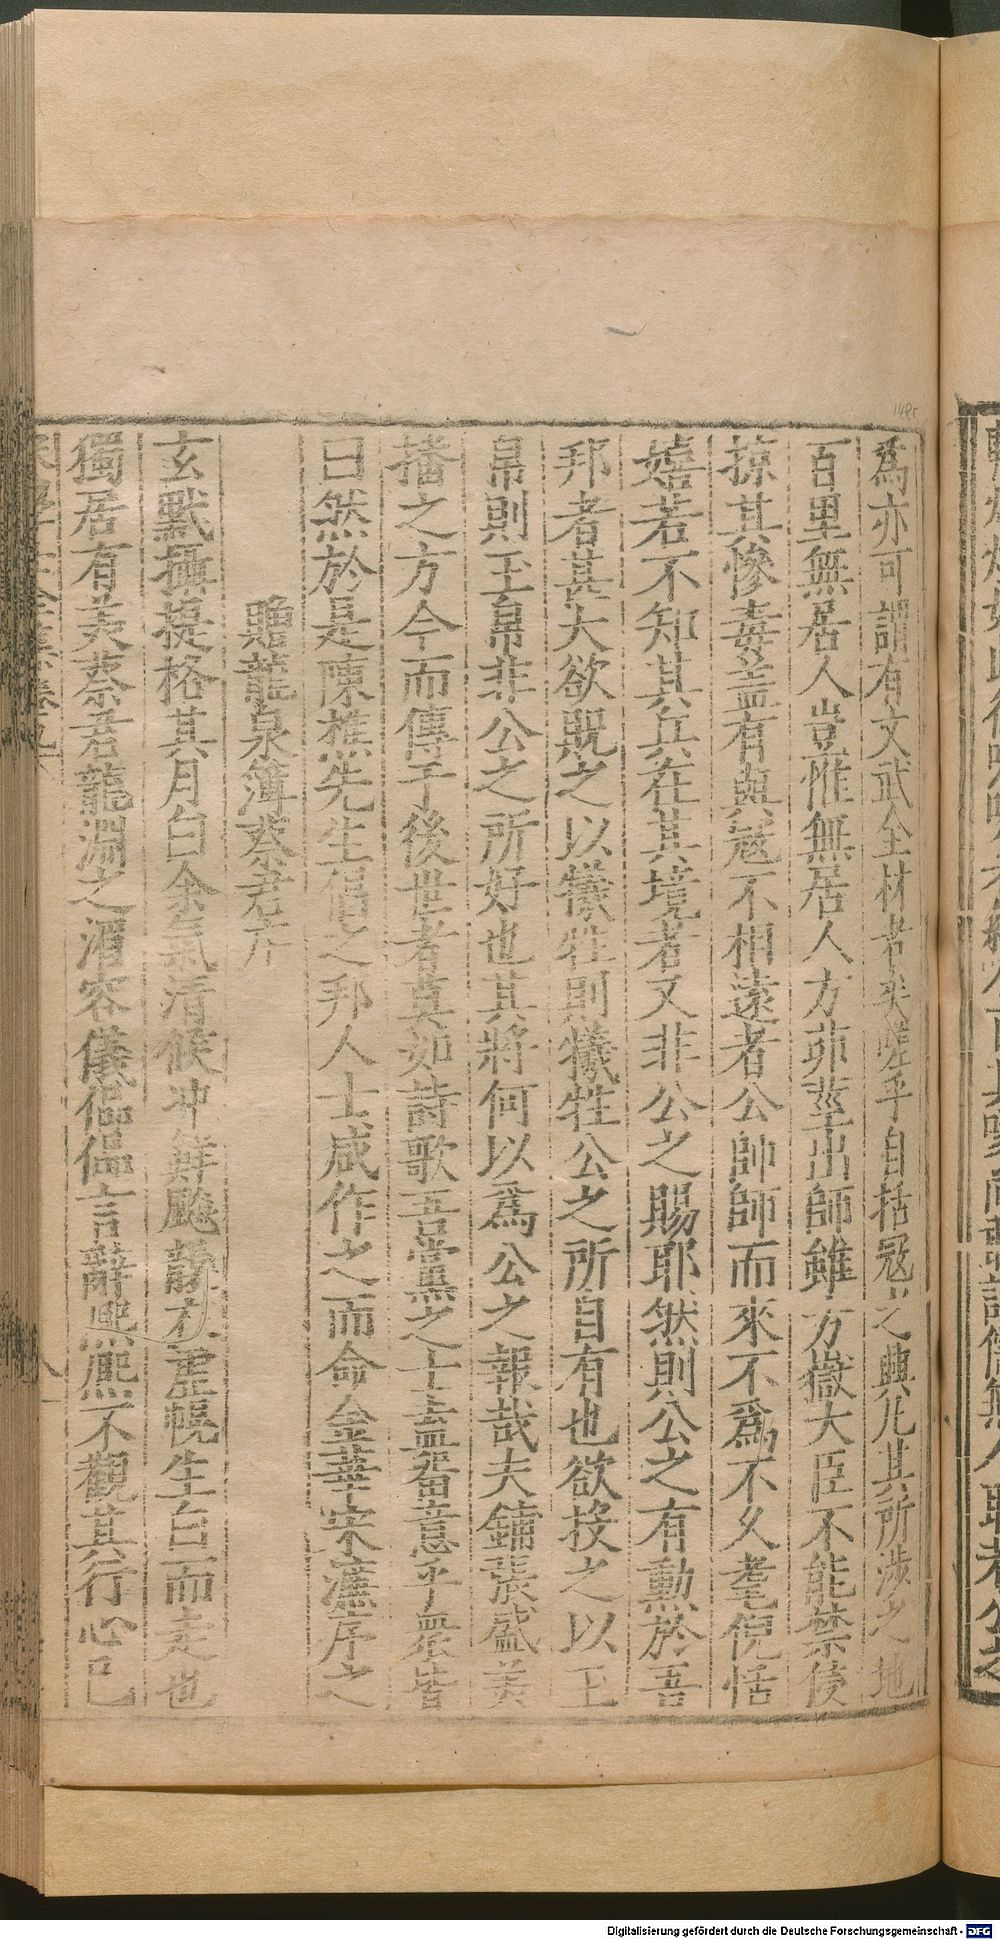 爲亦可謂有文武全材者矣嗟乎自括冦之興凡其所涉之地
百里無居人豈惟無居人方茆莖出師雖方嶽大臣不能禁侵
掠其慘毒盖有與冦不相遠者公帥師而來不爲不久耄倪恬
嬉若不知其兵在其境者又非公之賜耶然則公之有勳於吾
邦者甚大欲貺之以犧牲則犧牲公之所自有也欲投之以玉
帛則玉帛非公之所好也其將何以爲公之報哉夫鋪張盛美
播之方今而傳于後世者莫如詩歌吾黨之士盍畱意乎衆皆
曰然於是陳樵先生倡之邦人士咸作之而命金華宋濂序之
贈龍泉簿蔡君序
玄黓攝提格其月白余氣清候冲鮮飈靜衣虛幌生白而走也
獨居有美蔡君龍淵之湄容儀傴傴言辭熙熙不觀其行心已
Digitalisierung gefördert durch die Deutsche Forschungsgemeinschaft - DFG